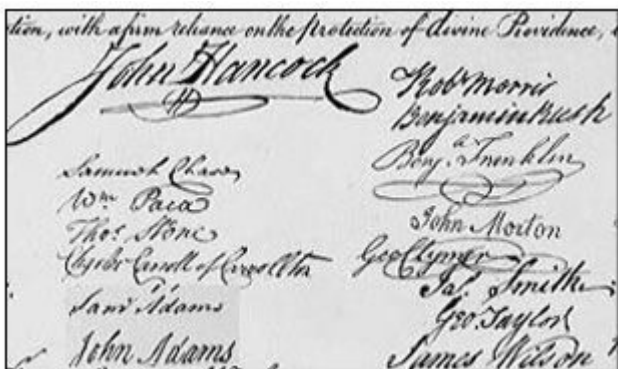 tion, with a firm reliance on the protection of divine Providence,
John Hancock
Samuel Chase
Wm. Paca
Thos. Stone
Charles Carroll of Carrollton
Saml Adams
John Adams
Robt Morris
Benjamin Rush
Benja. Franklin
John Morton
Geo Clymer
Jas. Smith
Geo. Taylor
James Wilson